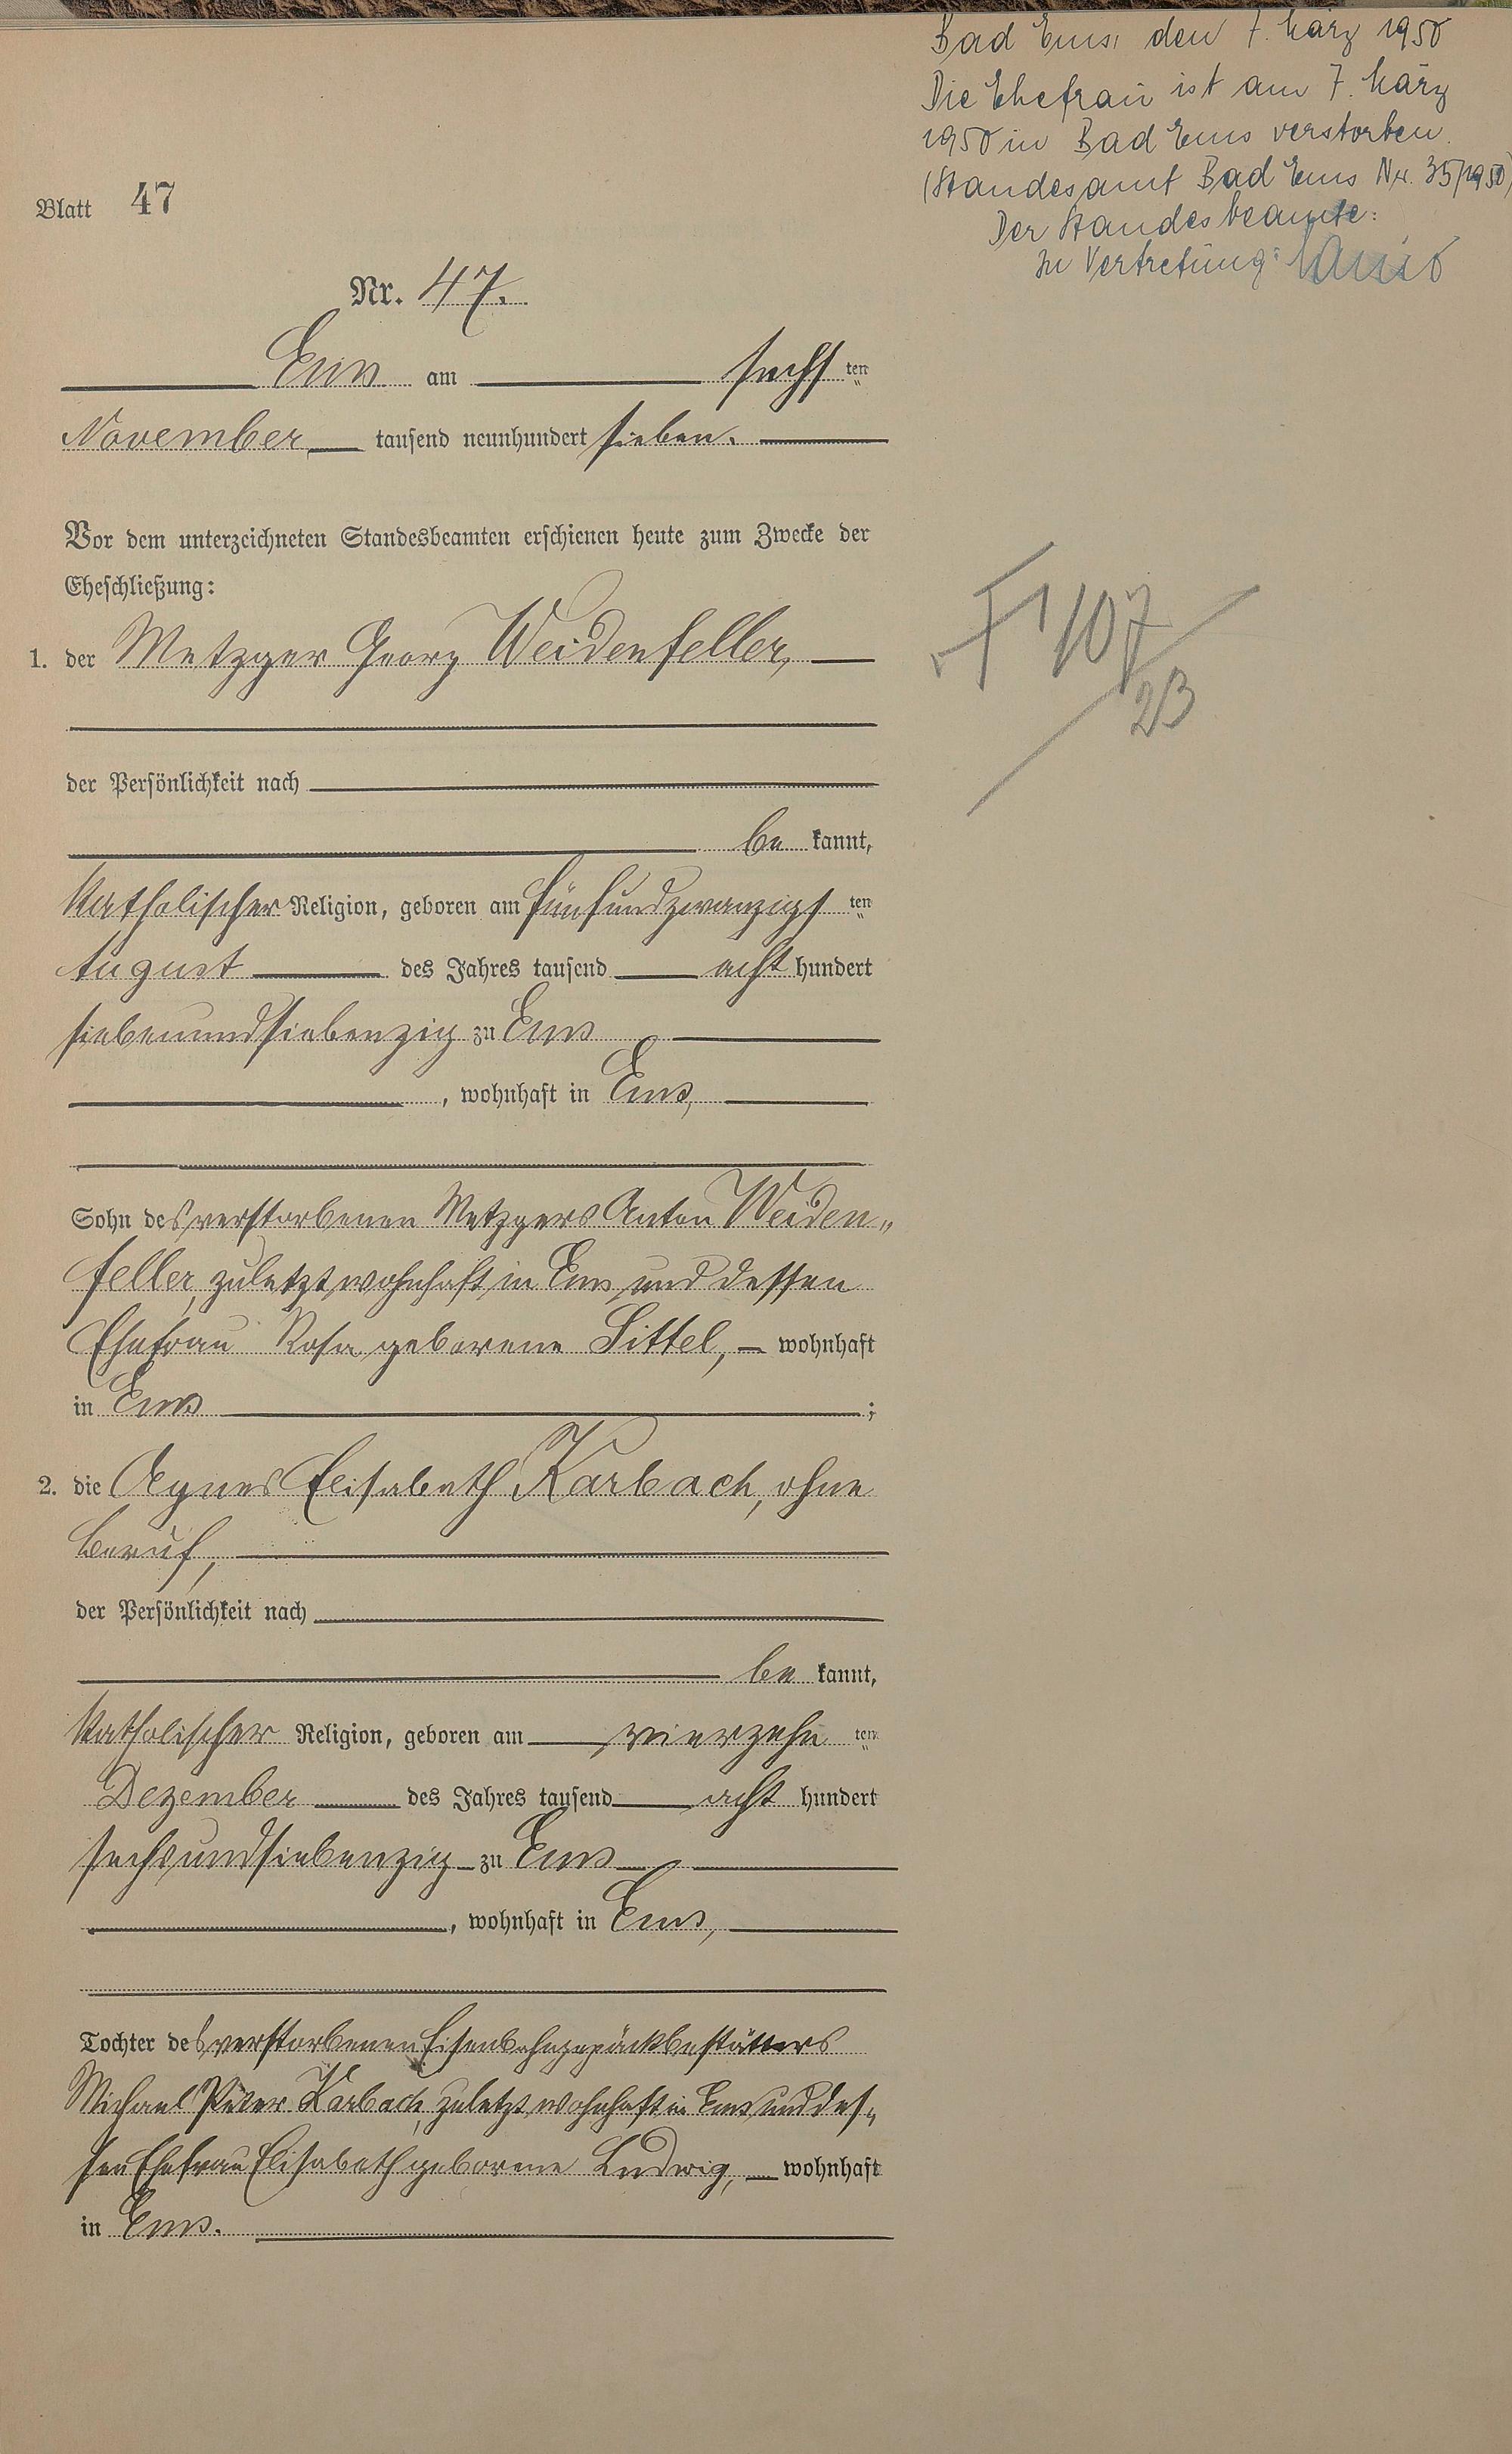 Bad Ems, den 7. März 1950
Die Ehefrau ist am 7. März
1950 in Bad Ems verstorben.
(Standesamt Bad Ems Nr. 35/1950)
Der Standesbeamte:
In Vertretung:
Blatt 47
Nr. 47.
Ems am sechsten
November tausend neunhundert sieben.
Vor dem unterzeichneten Standesbeamten erschienen heute zum Zwecke der
Eheschließung:
1. der Metzger Georg Weidenfeller,
der Persönlichkeit nach
be kannt,
katholischer Religion, geboren am fünfundzwanzigsten
August des Jahres tausend acht hundert
siebenundsiebenzig zu Ems
, wohnhaft in Ems,
Sohn des verstorbenen Metzgers Anton Weiden„
feller, zuletzt wohnhaft in Ems und dessen
Ehefrau Rosa geborene Sittel, wohnhaft
in Ems ;
2. die Agnes Elisabeth Karbach, ohne
Beruf,
der Persönlichkeit nach
be kannt,
katholischer Religion, geboren am vierzehnten
Dezember des Jahres tausend acht hundert
sechsundsiebenzig zu Ems
, wohnhaft in Ems,
Tochter des verstorbenen Eisenbahngepäckbestätters
Michael Peter Karbach, zuletzt wohnhaft in Ems und des„
sen Ehefrau Elisabeth geborene Ludwig, wohnhaft
in Ems.
107
23